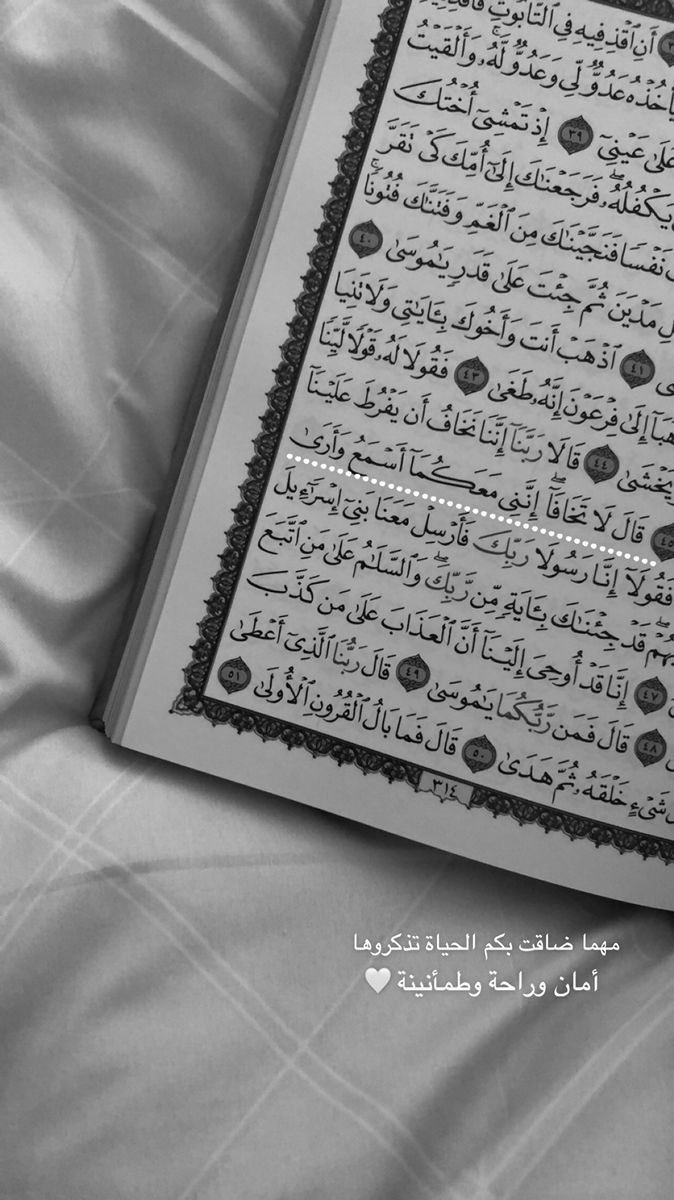 أَنِ ٱقْذِفِيهِ فِى ٱلتَّابُوتِ
يَأْخُذْهُ عَدُوٌّ لِّى وَعَدُوٌّ لَّهُۥ ۚ وَأَلْقَيْتُ
عَلَىٰ عَيْنِىٓ ٣٩ إِذْ تَمْشِىٓ أُخْتُكَ
يَكْفُلُهُۥ ۖ فَرَجَعْنَٰكَ إِلَىٰٓ أُمِّكَ كَىْ تَقَرَّ
نَفْسًا فَنَجَّيْنَٰكَ مِنَ ٱلْغَمِّ وَفَتَنَّٰكَ فُتُونًا ۚ
مَدْيَنَ ثُمَّ جِئْتَ عَلَىٰ قَدَرٍ يَٰمُوسَىٰ ٤٠
٤١ ٱذْهَبْ أَنتَ وَأَخُوكَ بِـَٔايَٰتِى وَلَا تَنِيَا
إِلَىٰ فِرْعَوْنَ إِنَّهُۥ طَغَىٰ ٤٣ فَقُولَا لَهُۥ قَوْلًا لَّيِّنًا
يَخْشَىٰ ٤٤ قَالَا رَبَّنَآ إِنَّنَا نَخَافُ أَن يَفْرُطَ عَلَيْنَآ
٤٥ قَالَ لَا تَخَافَآ ۖ إِنَّنِى مَعَكُمَآ أَسْمَعُ وَأَرَىٰ
فَقُولَآ إِنَّا رَسُولَا رَبِّكَ فَأَرْسِلْ مَعَنَا بَنِىٓ إِسْرَٰٓءِيلَ
قَدْ جِئْنَٰكَ بِـَٔايَةٍ مِّن رَّبِّكَ ۖ وَٱلسَّلَٰمُ عَلَىٰ مَنِ ٱتَّبَعَ
٤٧ إِنَّا قَدْ أُوحِىَ إِلَيْنَآ أَنَّ ٱلْعَذَابَ عَلَىٰ مَن كَذَّبَ
٤٨ قَالَ فَمَن رَّبُّكُمَا يَٰمُوسَىٰ ٤٩ قَالَ رَبُّنَا ٱلَّذِىٓ أَعْطَىٰ
شَىْءٍ خَلْقَهُۥ ثُمَّ هَدَىٰ ٥٠ قَالَ فَمَا بَالُ ٱلْقُرُونِ ٱلْأُولَىٰ ٥١
٣١٤
مهما ضاقت بكم الحياة تذكروها
أمان وراحة وطمأنينة 🤍